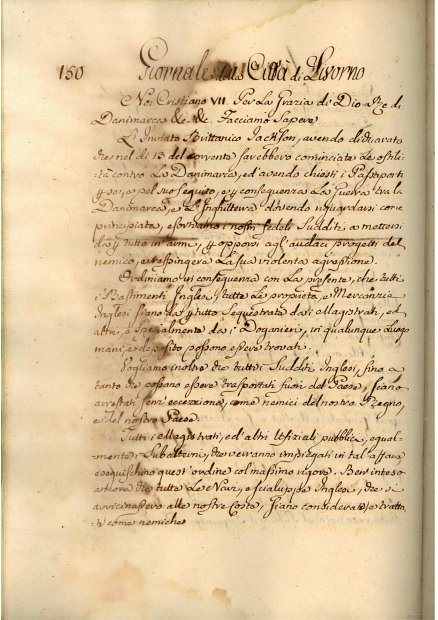 150 Giornale della Città di Livorno
Noi Cristiano VII. Per La Grazia di Dio Re di
Danimarca &c. &c. Facciamo Sapere
L'Inviato Brittanico Jackson, avendo dichiarato
che nel dì 13 del corrente sarebbero cominciate Le ostili
tà contro La Danimarca, ed avendo chiesti i Passaporti
e pel suo seguito, e conseguenza La Guerra tra la
Danimarca, e L'Inghilterra dovendo riguardarsi come
principiata, esortiamo i nostri fedeli Sudditi a mettersi
da tutto in armi, opporsi agl'audaci progetti del
nemico, e respingere La sua violenta agressione.
Ordiniamo in conseguenza con La presente, che tutti
i Bastimenti Inglesi, tutte Le proprietà, e Mercanzie
Inglesi siano da tutto Sequestrate dai Magistrati, ed
altri, e Specialmente da i Doganieri, in qualunque Luogo
mani, e deposito possono essere trovati.
Vogliamo inoltre che tutti i Sudditi Inglesi, fino a
tanto che possano essere trasportati fuori del Paese, siano
arrestati senz'eccezione, come nemici del nostro Regno,
e del nostro Paese.
Tutti i Magistrati, ed altri Ufiziali pubblici, egual-
mente i Subalterni, che verranno impiegati in tal affare
eseguischino quest'ordine col massimo rigore. Ben inteso
che tutte Le Navi, e scialuppe Inglesi, che si
avvicinassero alle nostre Coste, siano considerate, e tratta
te come nemiche